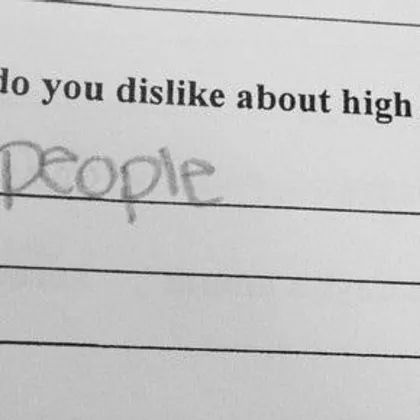 do you dislike about high
people